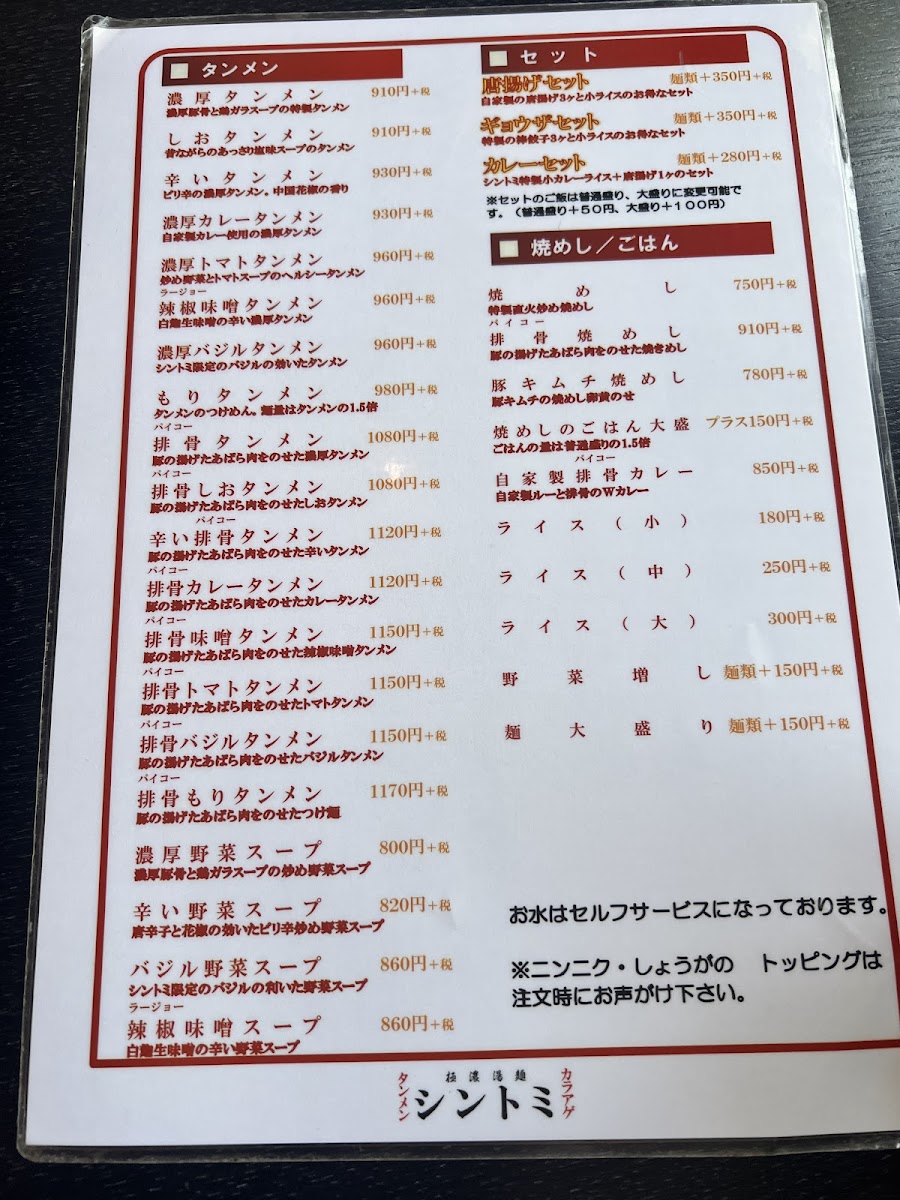 タンメン
濃厚タンメン 910円+税
濃厚豚骨と鶏ガラスープの特製タンメン
しおタンメン 910円+税
昔ながらのあっさり塩味スープのタンメン
辛いタンメン 930円+税
ピリ辛の濃厚タンメン。中国花椒の香り
濃厚カレータンメン 930円+税
自家製カレー使用の濃厚タンメン
濃厚トマトタンメン 960円+税
炒め野菜とトマトスープのヘルシータンメン
ラージョー
辣椒味噌タンメン 960円+税
白麹生味噌の辛い濃厚タンメン
濃厚バジルタンメン 960円+税
シントミ限定のバジルの効いたタンメン
もりタンメン 980円+税
タンメンのつけめん。麺量はタンメンの1.5倍
パイコー
排骨タンメン 1080円+税
豚の揚げたあばら肉をのせた濃厚タンメン
パイコー
排骨しおタンメン 1080円+税
豚の揚げたあばら肉をのせたしおタンメン
パイコー
辛い排骨タンメン 1120円+税
豚の揚げたあばら肉をのせた辛いタンメン
パイコー
排骨カレータンメン 1120円+税
豚の揚げたあばら肉をのせたカレータンメン
パイコー
排骨味噌タンメン 1150円+税
豚の揚げたあばら肉をのせた辣椒味噌タンメン
パイコー
排骨トマトタンメン 1150円+税
豚の揚げたあばら肉をのせたトマトタンメン
パイコー
排骨バジルタンメン 1150円+税
豚の揚げたあばら肉をのせたバジルタンメン
パイコー
排骨もりタンメン 1170円+税
豚の揚げたあばら肉をのせたつけ麺
濃厚野菜スープ 800円+税
濃厚豚骨と鶏ガラスープの炒め野菜スープ
辛い野菜スープ 820円+税
唐辛子と花椒の効いたピリ辛炒め野菜スープ
バジル野菜スープ 860円+税
シントミ限定のバジルの利いた野菜スープ
ラージョー
辣椒味噌スープ 860円+税
白麹生味噌の辛い野菜スープ
セット
唐揚げ・セット 麺類+350円+税
自家製の唐揚げ3ヶと小ライスのお得なセット
ギョウザ・セット 麺類+350円+税
特製の棒餃子3ヶと小ライスのお得なセット
カレー・セット 麺類+280円+税
シントミ特製小カレーライス+唐揚げ1ヶのセット
※セットのご飯は普通盛り、大盛りに変更可能で
す。（普通盛り+50円、大盛り+100円）
焼めし/ごはん
焼めし 750円+税
特製直火炒め焼めし
パイコー
排骨焼めし 910円+税
豚の揚げたあばら肉をのせた焼きめし
豚キムチ焼めし 780円+税
豚キムチの焼めし卵黄のせ
焼めしのごはん大盛 プラス150円+税
ごはんの量は普通盛りの1.5倍
パイコー
自家製排骨カレー 850円+税
自家製ルーと排骨のWカレー
ライス(小) 180円+税
ライス(中) 250円+税
ライス(大) 300円+税
野菜増し 麺類+150円+税
麺大盛り 麺類+150円+税
お水はセルフサービスになっております。
※ニンニク・しょうがの トッピングは
注文時にお声がけ下さい。
タンメン
極濃湯麺
シントミ
カラアゲ